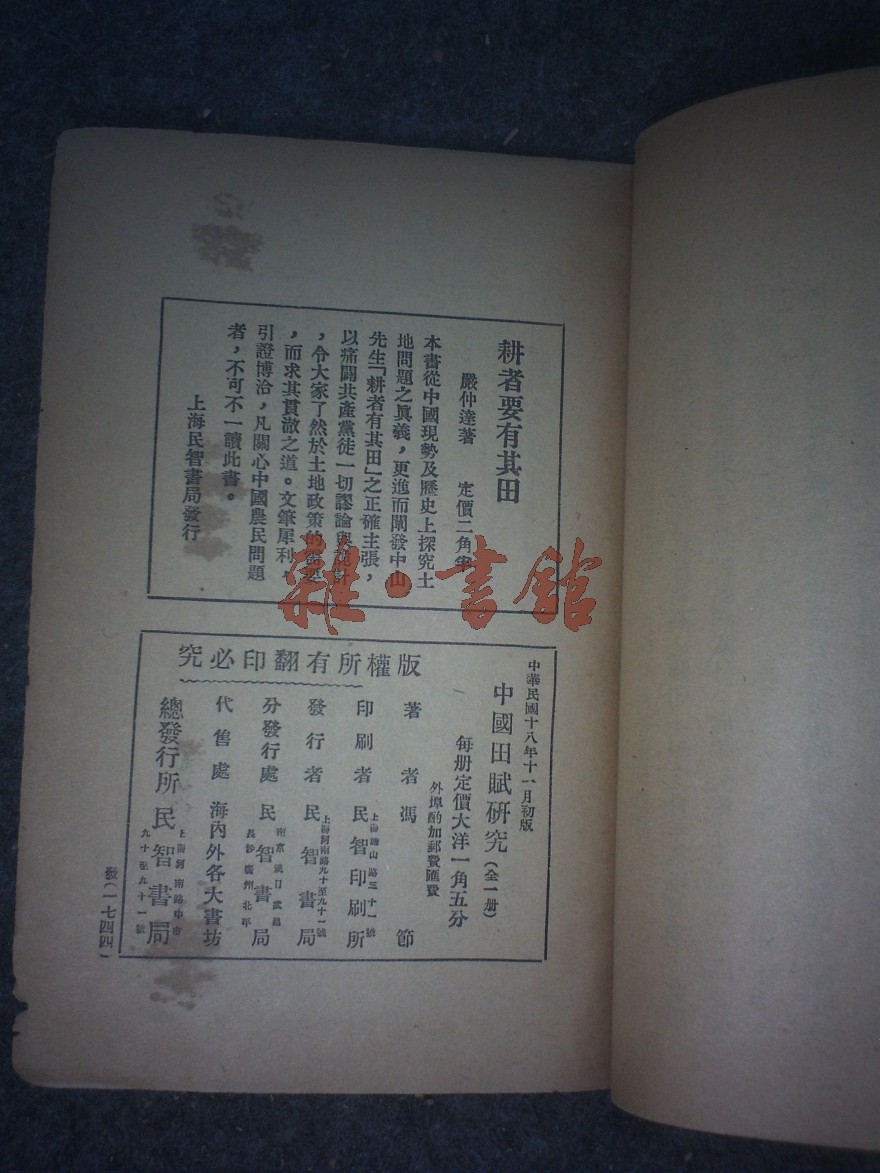 耕者要有其田
嚴仲達著　定價二角
本書從中國現勢及歷史上探究土
地問題之眞義，更進而闡發中山
先生「耕者有其田」之正確主張，
以痛闢共產黨徒一切謬論與
，令大家了然於土地政策的
，而求其貫澈之道。文筆犀利，
引證博洽，凡關心中國農民問題
者，不可不一讀此書。
上海民智書局發行
雜·書館
中華民國十八年十一月初版
中國田賦研究（全一册）
每册定價大洋一角五分
外埠酌加郵費匯費
版權所有翻印必究
著者馮節
印刷者民智印刷所
上海 山路三十一號
發行者民智書局
上海河南路九十至九十一號
分發行處民智書局
南京 漢口 武昌
長沙 廣州 北平
代售處 海內外各大書坊
總發行所民智書局
上海河南路中市
九十至九十一號
（一七四四）